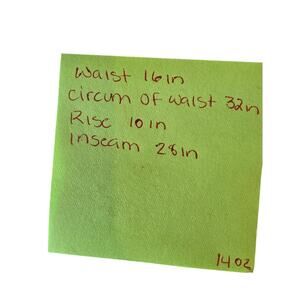 Waist 16in
circum of waist 32in
Rise 10in
Inseam 28in
14oz